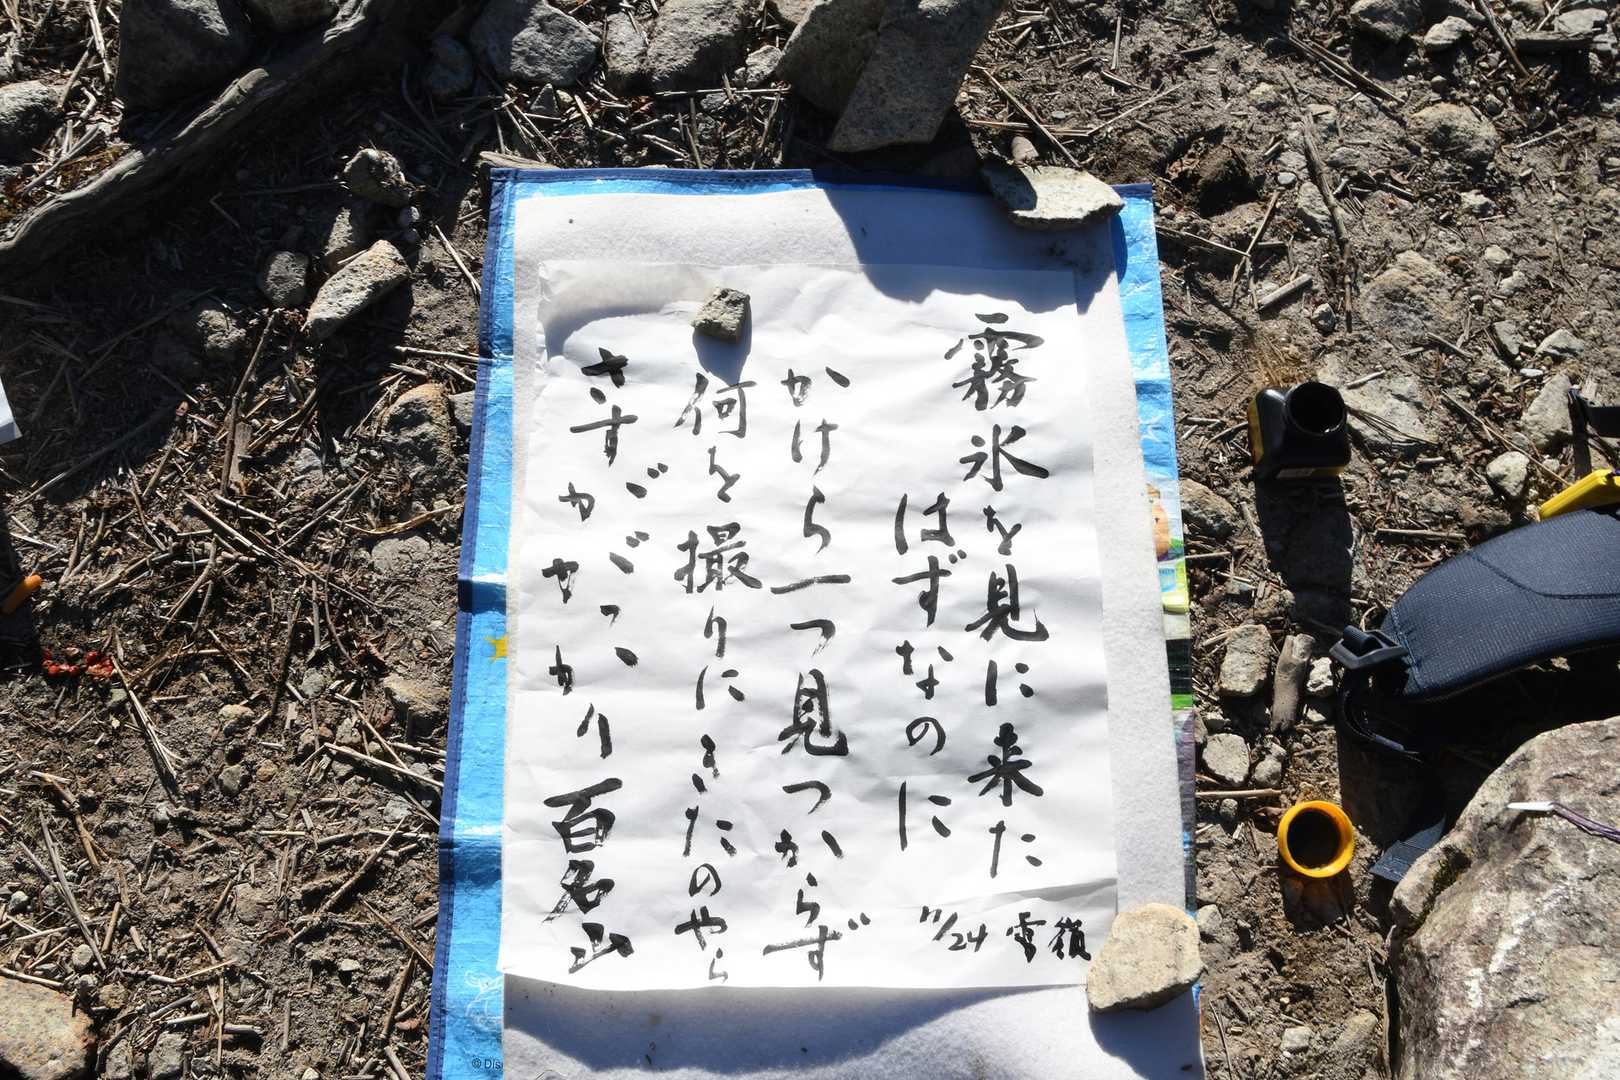 霧氷を見に来た
はずなのに
かけら一つ見つからず
何を撮りにきたのやら
さすががっかり百名山
11/24 雪嶺
© Dis